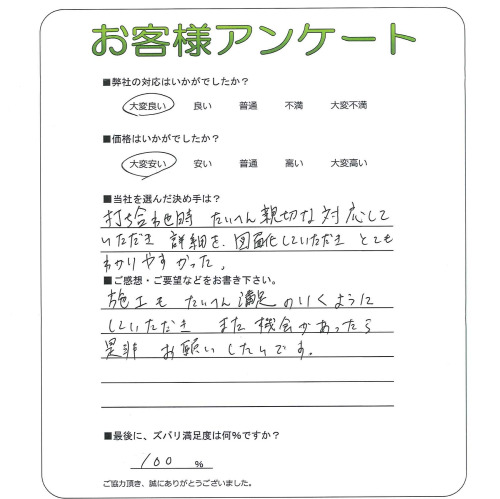 お客様アンケート
■弊社の対応はいかがでしたか?
大変良い 良い 普通 不満 大変不満
■価格はいかがでしたか?
大変安い 安い 普通 高い 大変高い
■当社を選んだ決め手は?
打ち合わせ時 たいへん親切な対応して
いただき 詳細を、図面化していただき とても
わかりやすかった。
■ご感想・ご要望などをお書き下さい。
施工も たいへん満足 のいくように
していただき また 機会があったら
是非 お願いしたいです。
■最後に、ズバリ満足度は何%ですか?
100 %
ご協力頂き、誠にありがとうございました。